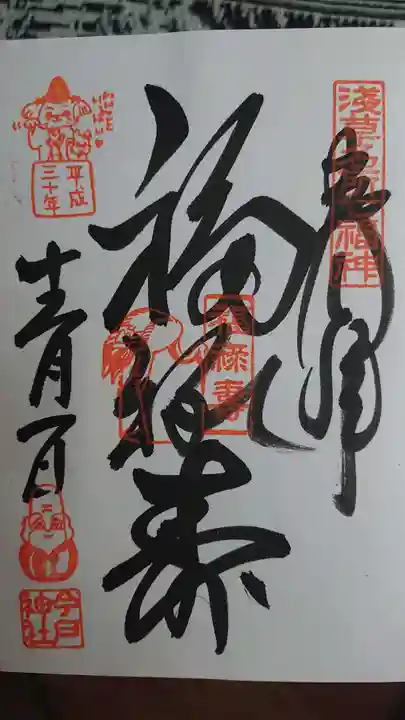 淺草名所七福神
奉拝
福禄寿
福禄壽
平成
三十年
今戸
神社